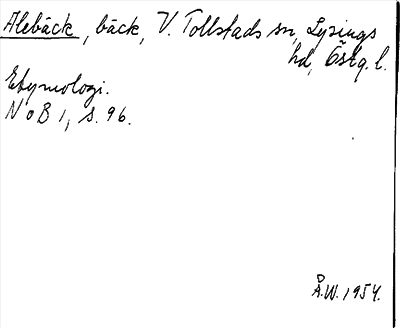 Alebäck, bäck, V. Tollstads sn, Lysings
hd, Östg. l.
Etymologi.
NoB 1, s. 96.
Å.W. 1954.